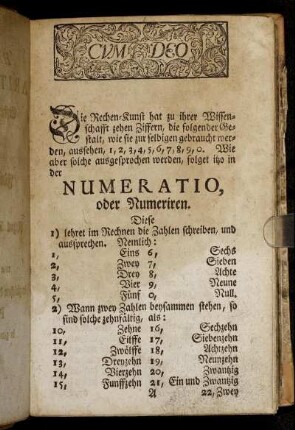 CVM DEO
Die Rechen-Kunst hat zu ihrer Wissen-
schafft zehen Ziffern, die folgender Ge-
stalt, wie sie zur selbigen gebraucht wer-
den, aussehen, 1, 2, 3, 4, 5, 6, 7, 8, 9, 0. Wie
aber solche ausgesprochen werden, folget itzo in
der
NUMERATIO,
oder Numeriren.
Diese
1) lehret im Rechnen die Zahlen schreiben, und
aussprechen. Nemlich:
1, Eins 6, Sechs
2, Zwey 7, Sieben
3, Drey 8, Achte
4, Vier 9, Neune
5, Fünf 0, Null.
2) Wann zwey Zahlen beysammen stehen, so
sind solche zehnfältig, als:
10, Zehne 16, Sechzehn
11, Eilffe 17, Siebenzehn
12, Zwölffe 18, Achtzehn
13, Dreyzehn 19, Neunzehn
14, Vierzehn 20, Zwantzig
15, Funffzehn 21, Ein und Zwantzig
A 22, Zwey